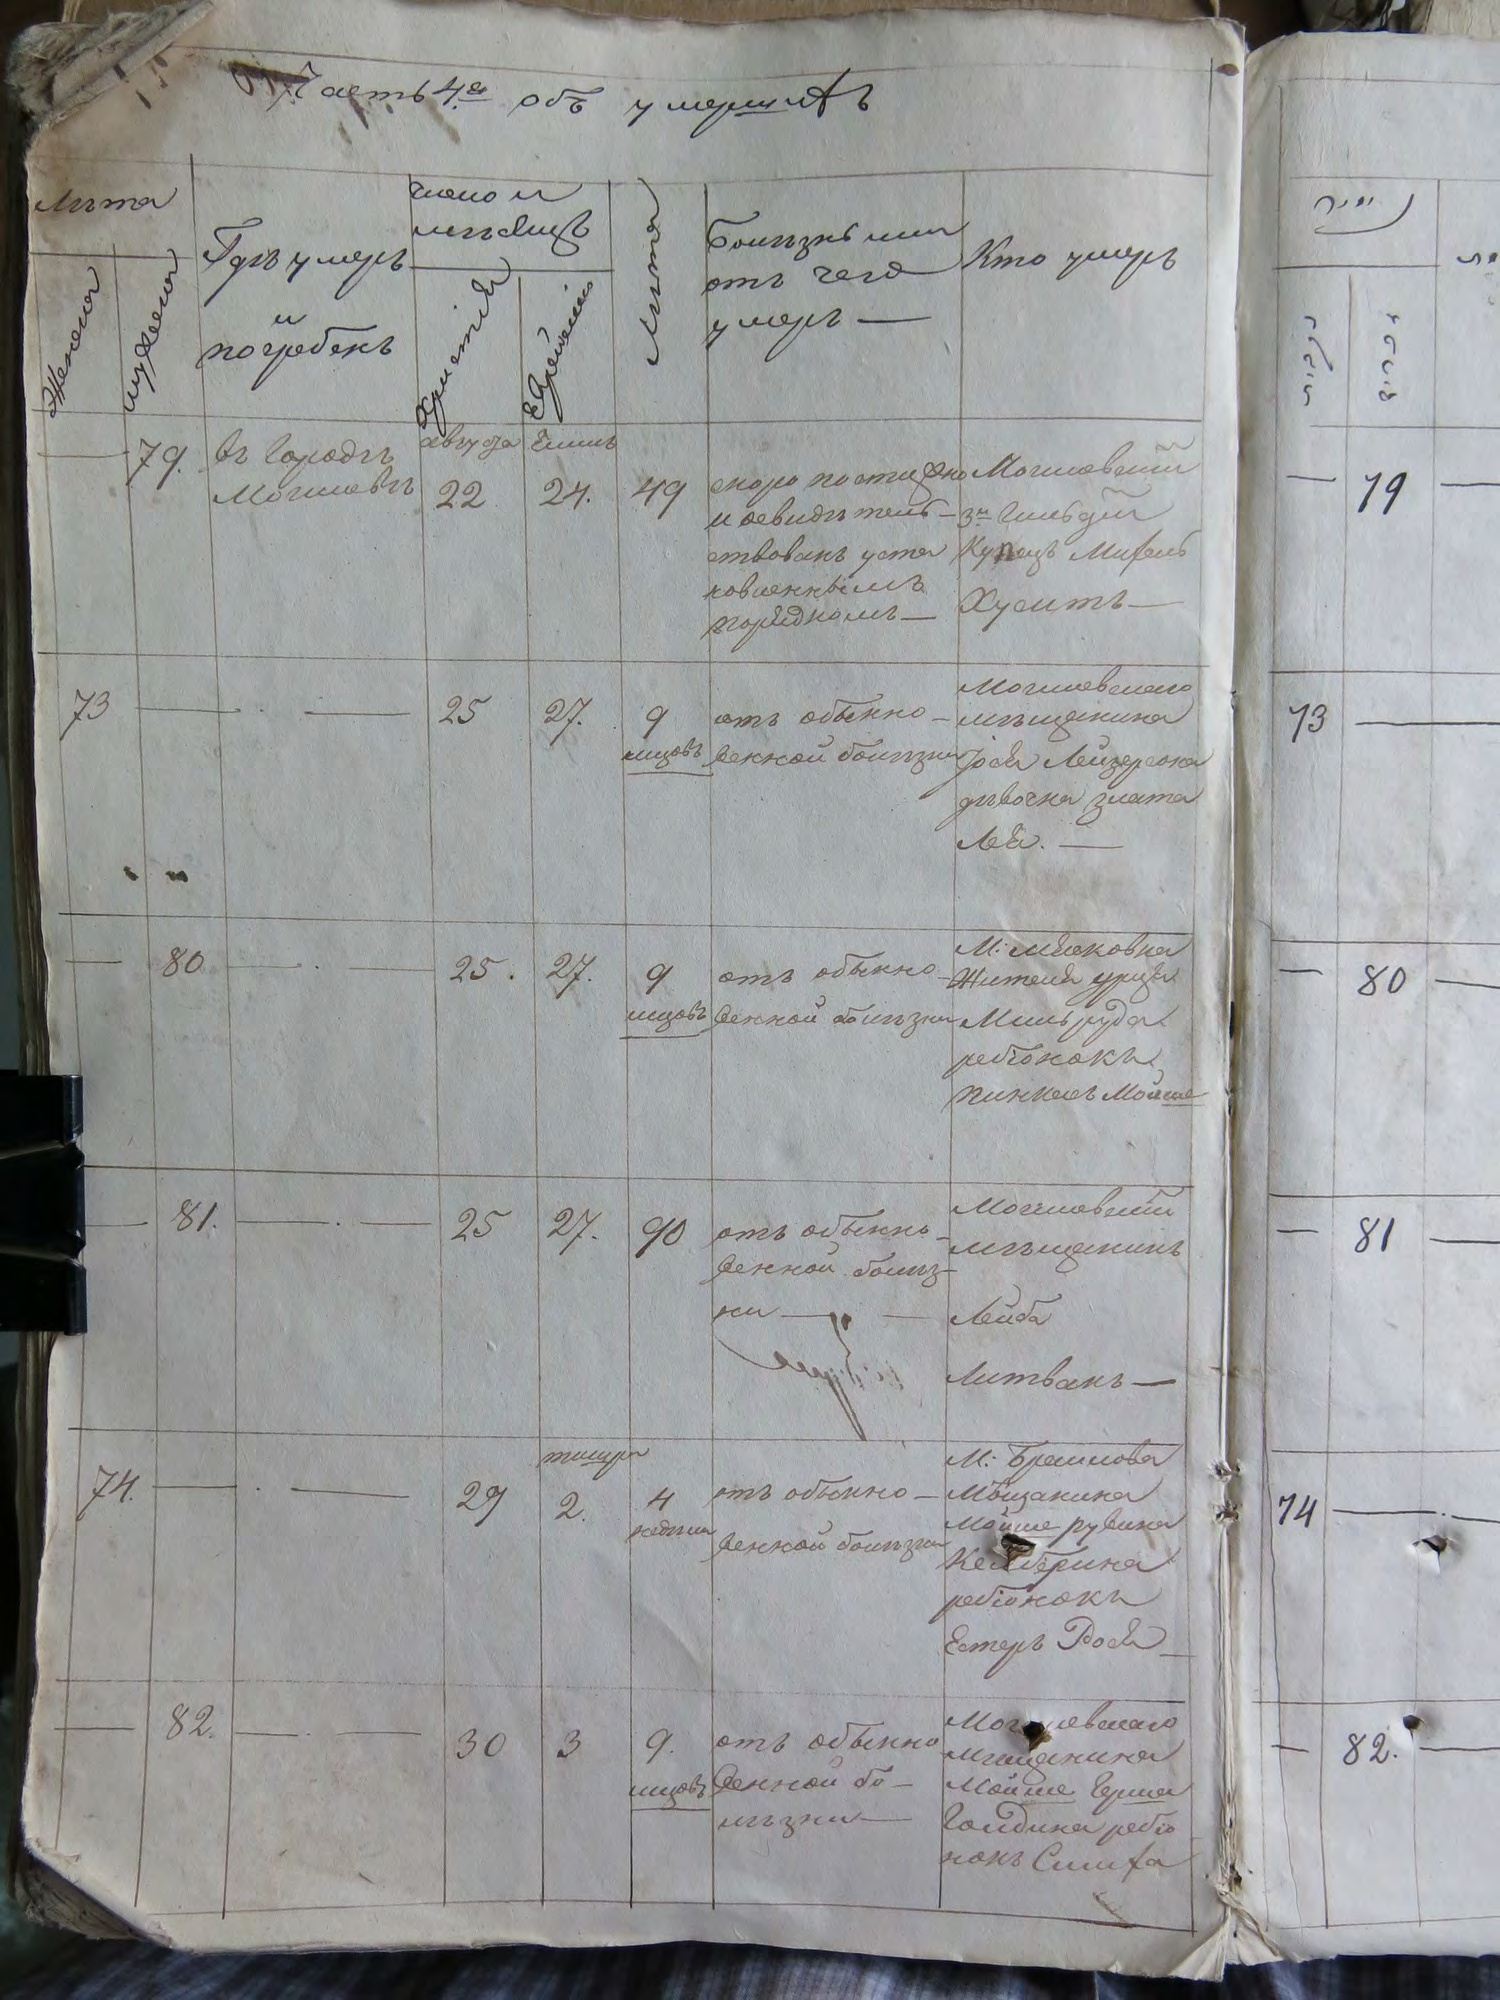 Часть 4.я объ умершихъ
Лѣта
Женска
мужеска
Гдѣ умеръ
и
погребенъ
число и
мѣсяцъ
Христіан
Еврейскій
Лѣта
Болѣзнь или
отъ чего
умеръ —
Кто умеръ
—
79.
въ городѣ
Могилевѣ
августа
22
Элиль
24.
49
скоропостижно
и освидѣтель-
ствованъ уста
новленнымъ
порядкомъ —
Могилевскій
3й Гильдіи
Купецъ Михель
Хуситъ —
73
— . —
25
27.
9
мцовъ
отъ обыкно-
венной болѣзни
Могилевскаго
мѣщанина
Лейзерсона
дѣвочка Злата
Лея. —
—
80
— . —
25.
27.
9
мцовъ
отъ обыкно-
венной болѣзни
М:
Жителя
ребіонокъ
Пинхасъ Мойше
—
81.
— . —
25
27.
90
отъ обыкно-
венной болѣз-
ни — —
Могилевскій
мѣщанинъ
Лейба
Литвакъ —
74.
— . —
29
тишри
2.
4
недѣли
отъ обыкно-
венной болѣзни
М: Браилова
Мѣщанина
Мойше рувина
ребіонокъ
Естеръ Рося —
—
82.
— . —
30
3
9.
мцовъ
отъ обыкно
венной бо-
лѣзни —
Могилевскаго
мѣщанина
Мойше Герша
Голдина ребіо
нокъ Симха
— 79 —
73 —
— 80 —
— 81 —
74 — . —
— 82. —